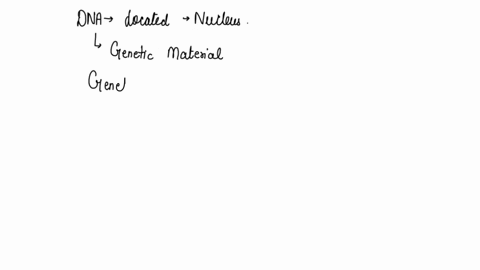 DNA → Located → Nucleus.
↳ Genetic Material
Gene